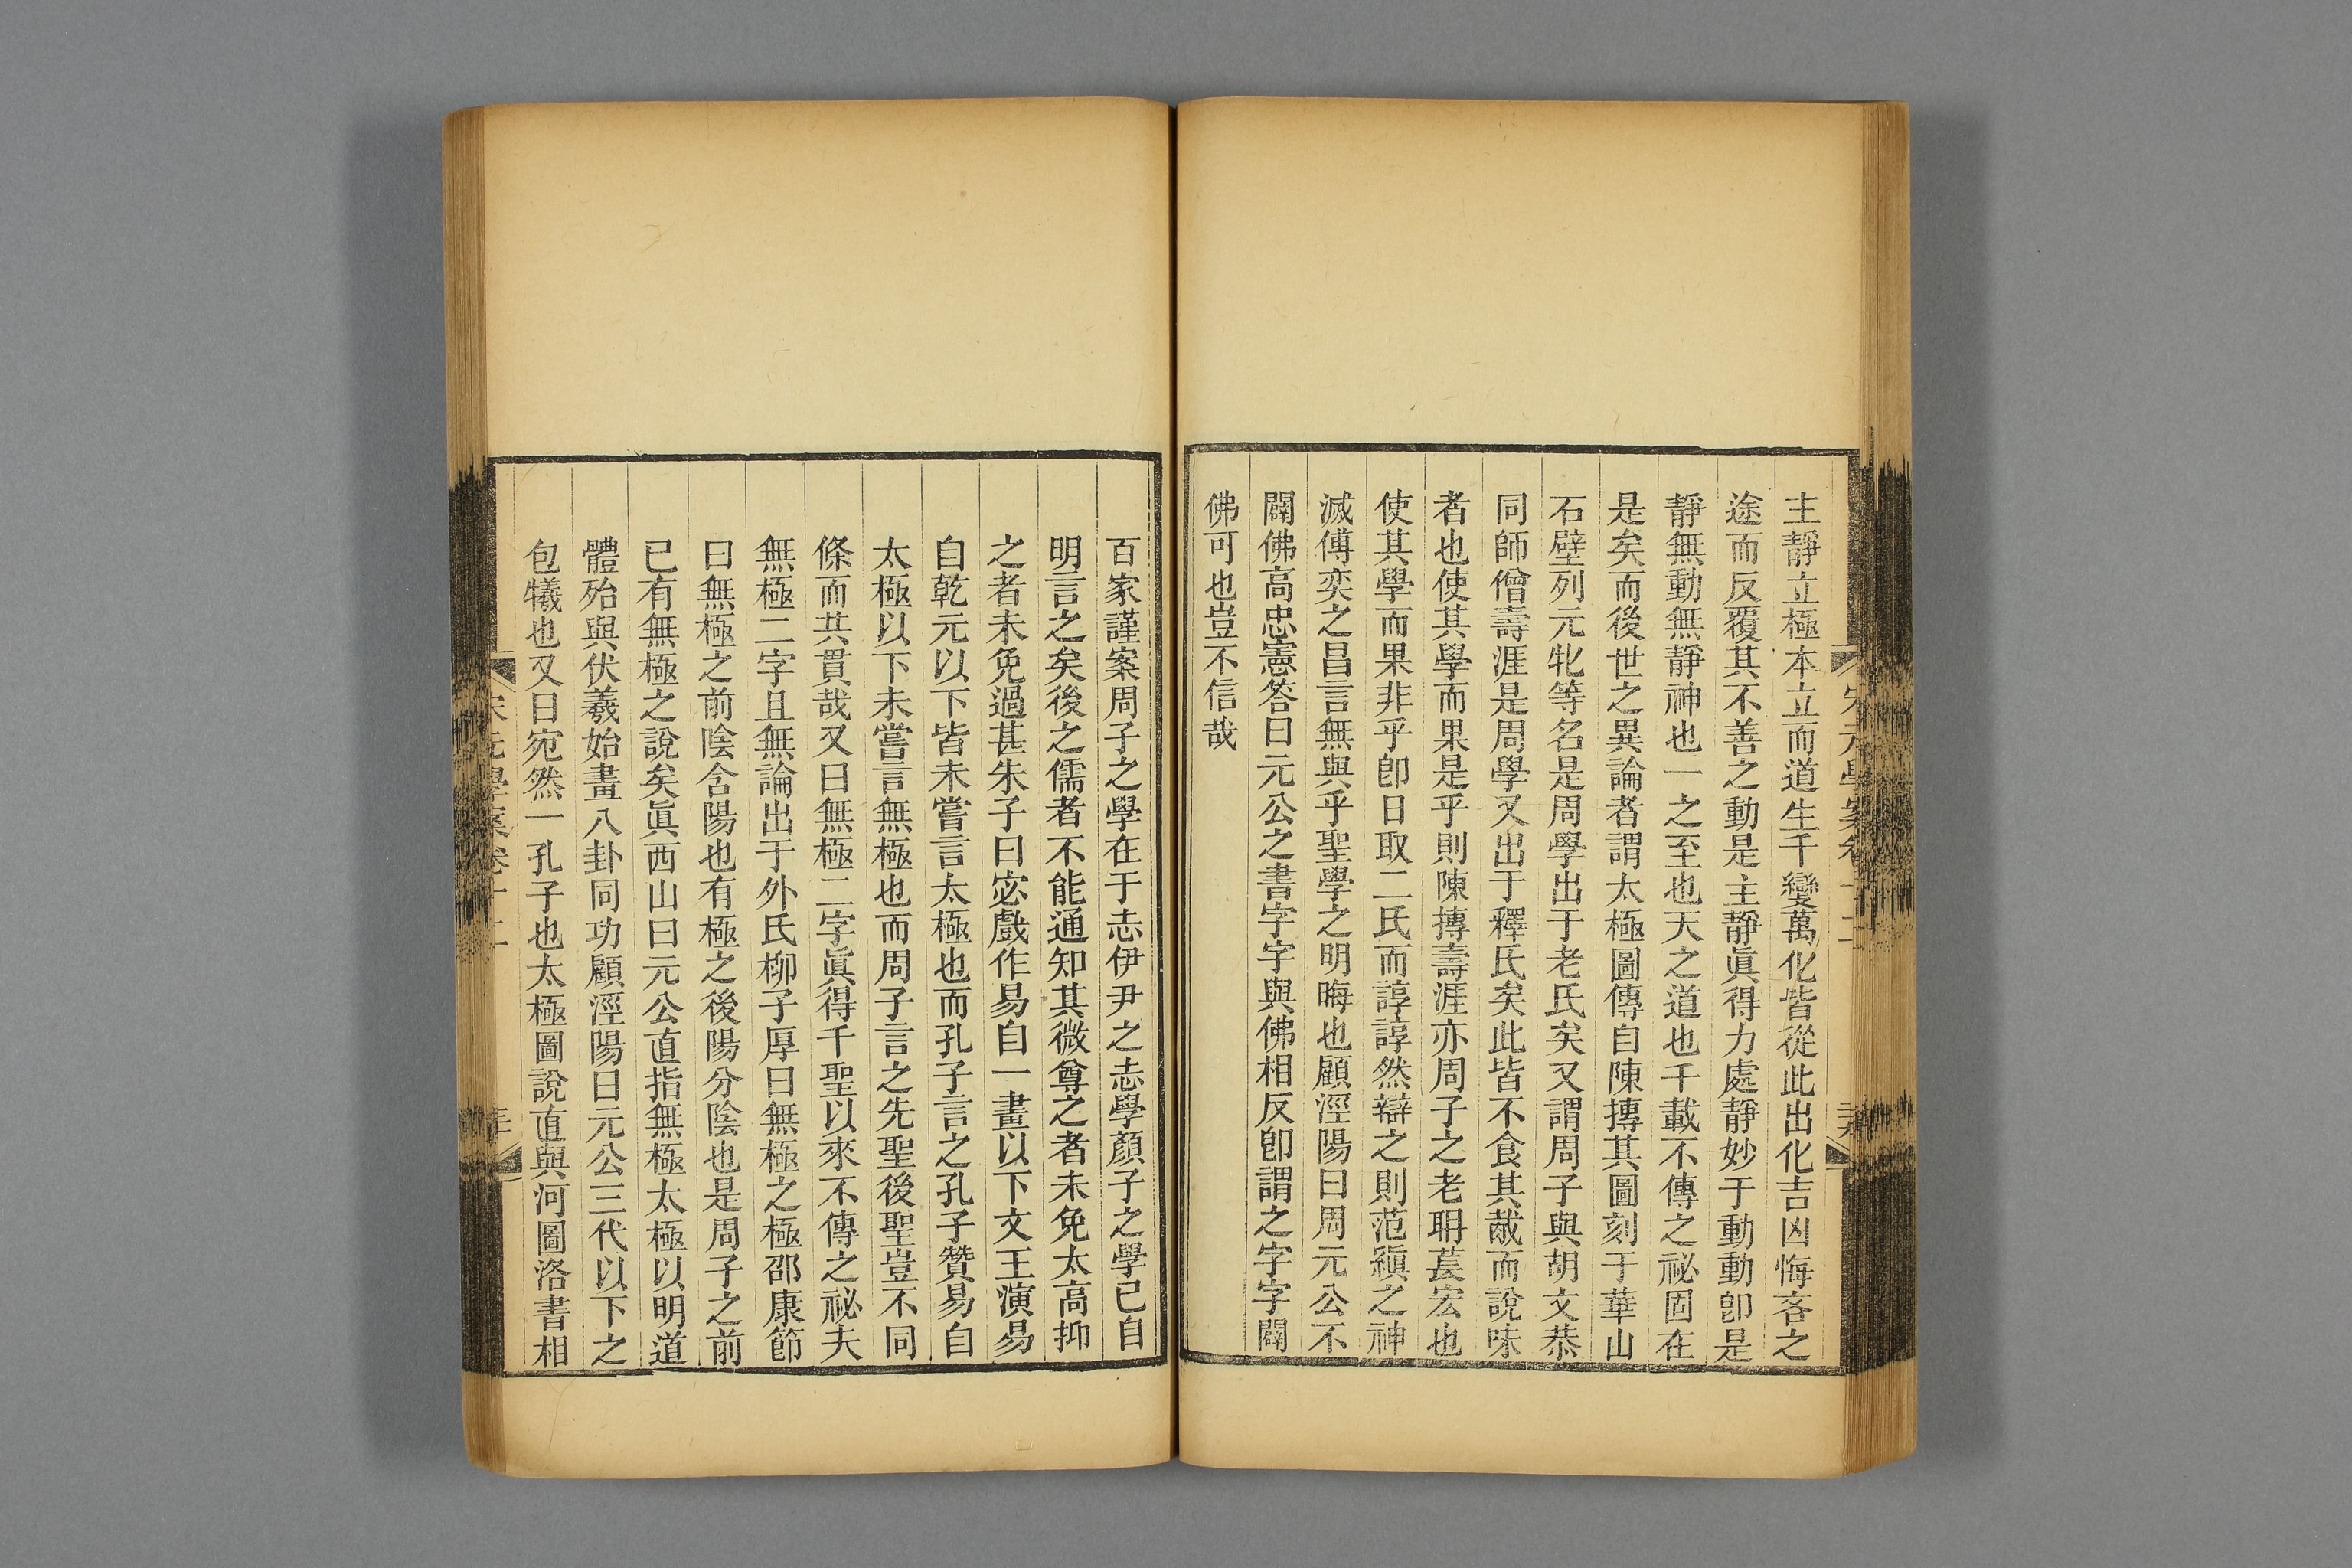 主靜立極本立而道生千變萬化皆從此出化吉凶悔吝之
途而反覆其不善之動是主靜眞得力處靜妙于動動卽是
靜無動無靜神也一之至也天之道也千載不傳之祕固在
是矣而後世之異論者謂太極圖傳自陳摶其圖刻于華山
石壁列元牝等名是周學出于老氏矣又謂周子與胡文恭
同師僧壽涯是周學又出于釋氏矣此皆不食其胾而說味
者也使其學而果是乎則陳摶壽涯亦周子之老耼萇宏也
使其學而果非乎卽日取二氏而諄諄然辯之則范縝之神
滅傅奕之昌言無與乎聖學之明晦也顧涇陽曰周元公不
闢佛高忠憲答曰元公之書字字與佛相反卽謂之字字闢
佛可也豈不信哉
百家謹案周子之學在于志伊尹之志學顏子之學已自
明言之矣後之儒者不能通知其微尊之者未免太高抑
之者未免過甚朱子曰宓戲作易自一畫以下文王演易
自乾元以下皆未嘗言太極也而孔子言之孔子贊易自
太極以下未嘗言無極也而周子言之先聖後聖豈不同
條而共貫哉又曰無極二字眞得千聖以來不傳之祕夫
無極二字且無論出于外氏柳子厚曰無極之極邵康節
曰無極之前陰含陽也有極之後陽分陰也是周子之前
已有無極之說矣眞西山曰元公直指無極太極以明道
體殆與伏羲始畫八卦同功顧涇陽曰元公三代以下之
包犧也又曰宛然一孔子也太極圖說直與河圖洛書相
宋元學案卷十二